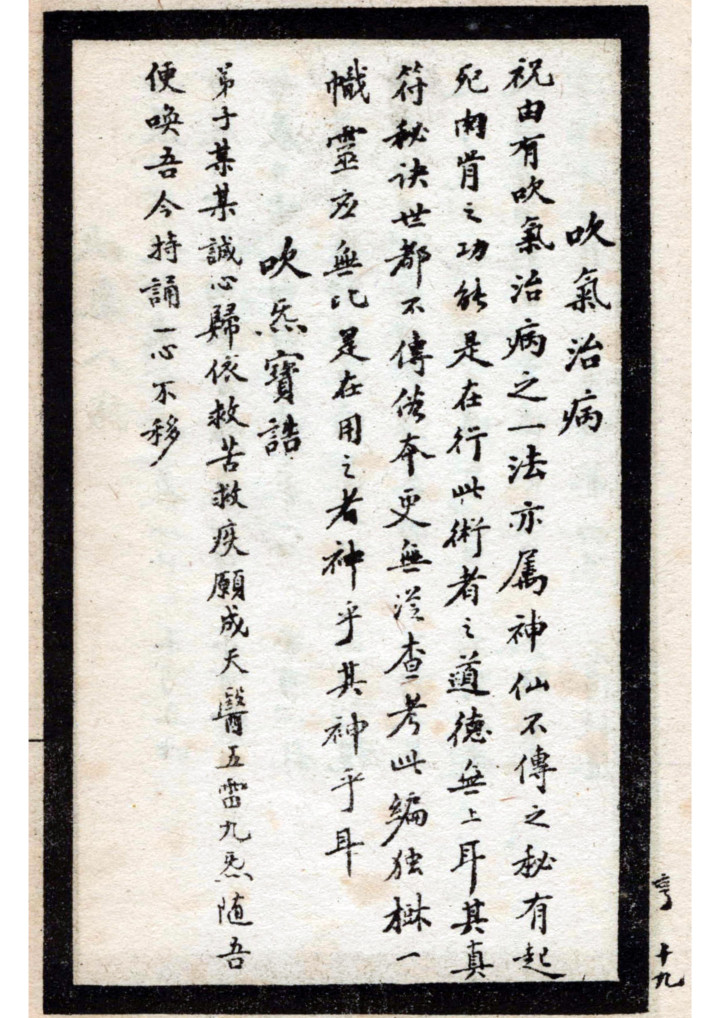 吹氣治病
祝由有吹氣治病之一法亦属神仙不傳之秘有起
死肉骨之功能是在行此術者之道德無上耳其真
符秘诀世都不傳俗本更無從查考此編独樹一
幟靈应無比是在用之者神乎其神乎耳
吹炁寶誥
弟子某某誠心歸依救苦救疾願成天醫五雷九炁随吾
便喚吾今持誦一心不移
亨 十九